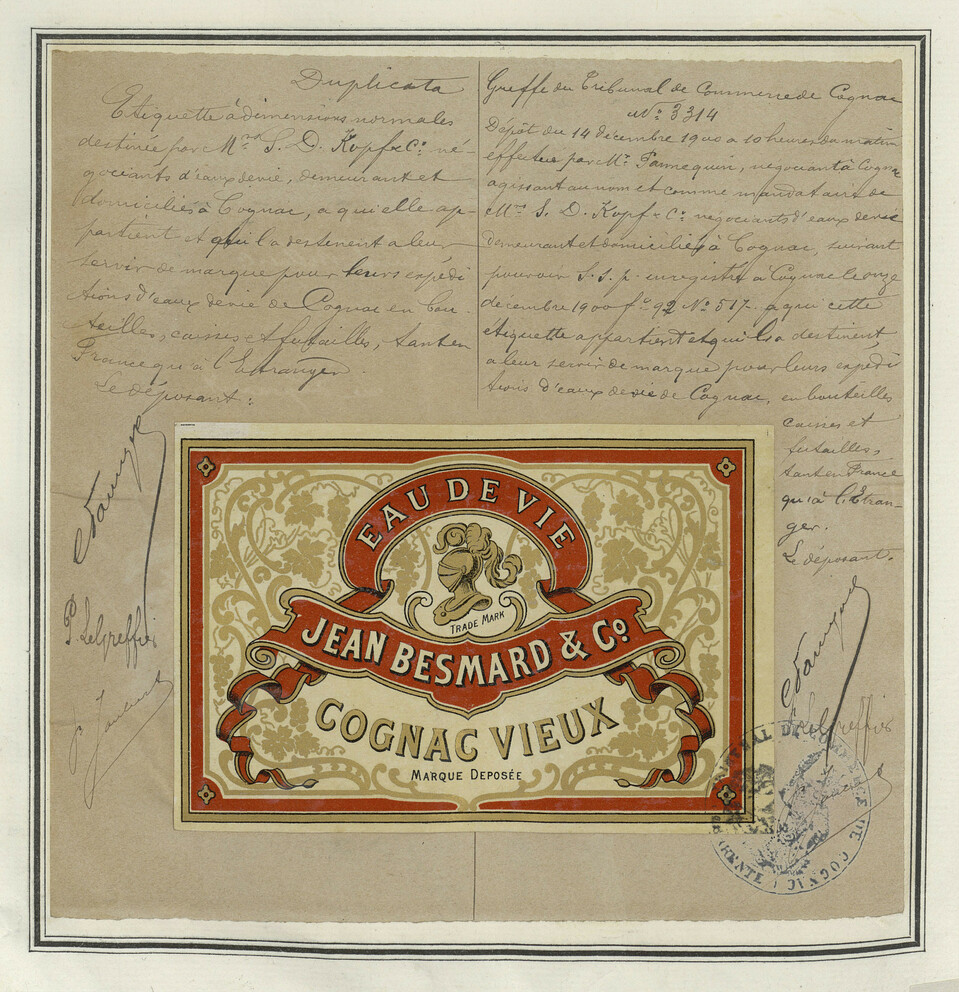 Duplicata
Etiquette à dimensions normales
destinée par Mrs S. D. Kopf & Co. né-
gociants d'eaux de vie, demeurant et
domiciliés à Cognac, a qui elle ap-
partient et qui la destinent a leur
servir de marque pour leurs expédi
tions d'eaux de vie de Cognac en bou-
teilles, caisses et futailles, tant en
France qu'à l'Etranger.
Le déposant:
P. Le Greffier
Greffe du Tribunal de Commerce de Cognac
No: 3314
Dépôt du 14 décembre 1900 a 10 heures du matin
effectué par Mr. Pannequin, négociant à Cognac
agissant au nom et comme mandataire de
Mrs S. D. Kopf & Co. négociants d'eaux de vie
demeurant et domiciliés à Cognac, suivant
pouvoir S. S. p. enregistré à Cognac le onze
décembre 1900 fo. 92 No 517, a qui cette
étiquette appartient et qui la destinent
a leur servir de marque pour leurs expédi
tions d'eaux de vie de Cognac, en bouteilles
caisses et
futailles,
tant en France
qu'à l'Etran-
ger.
Le déposant.
Le Greffier
EAU DE VIE
TRADE MARK
JEAN BESMARD & Co.
COGNAC VIEUX
MARQUE DEPOSÉE
TRIBUNAL DE COMMERCE DE COGNAC